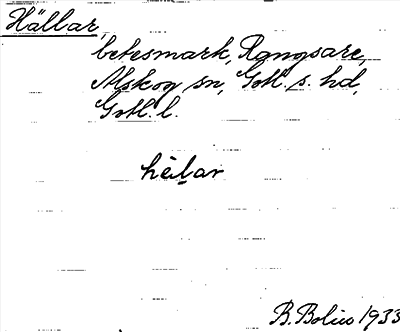 Hällar,
betesmark, Rangsare,
Alskog sn, Gotl. s. hd,
Gotl. l.
hèi̯lar
B. Bolin 1933